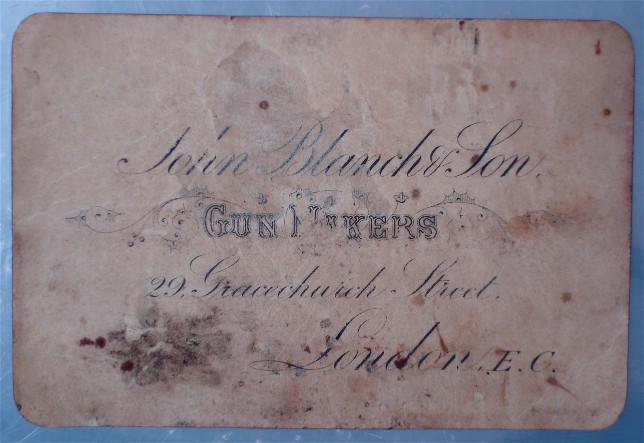 John Blanch & Son.
GUN MAKERS
29, Gracechurch Street.
London, E.C.